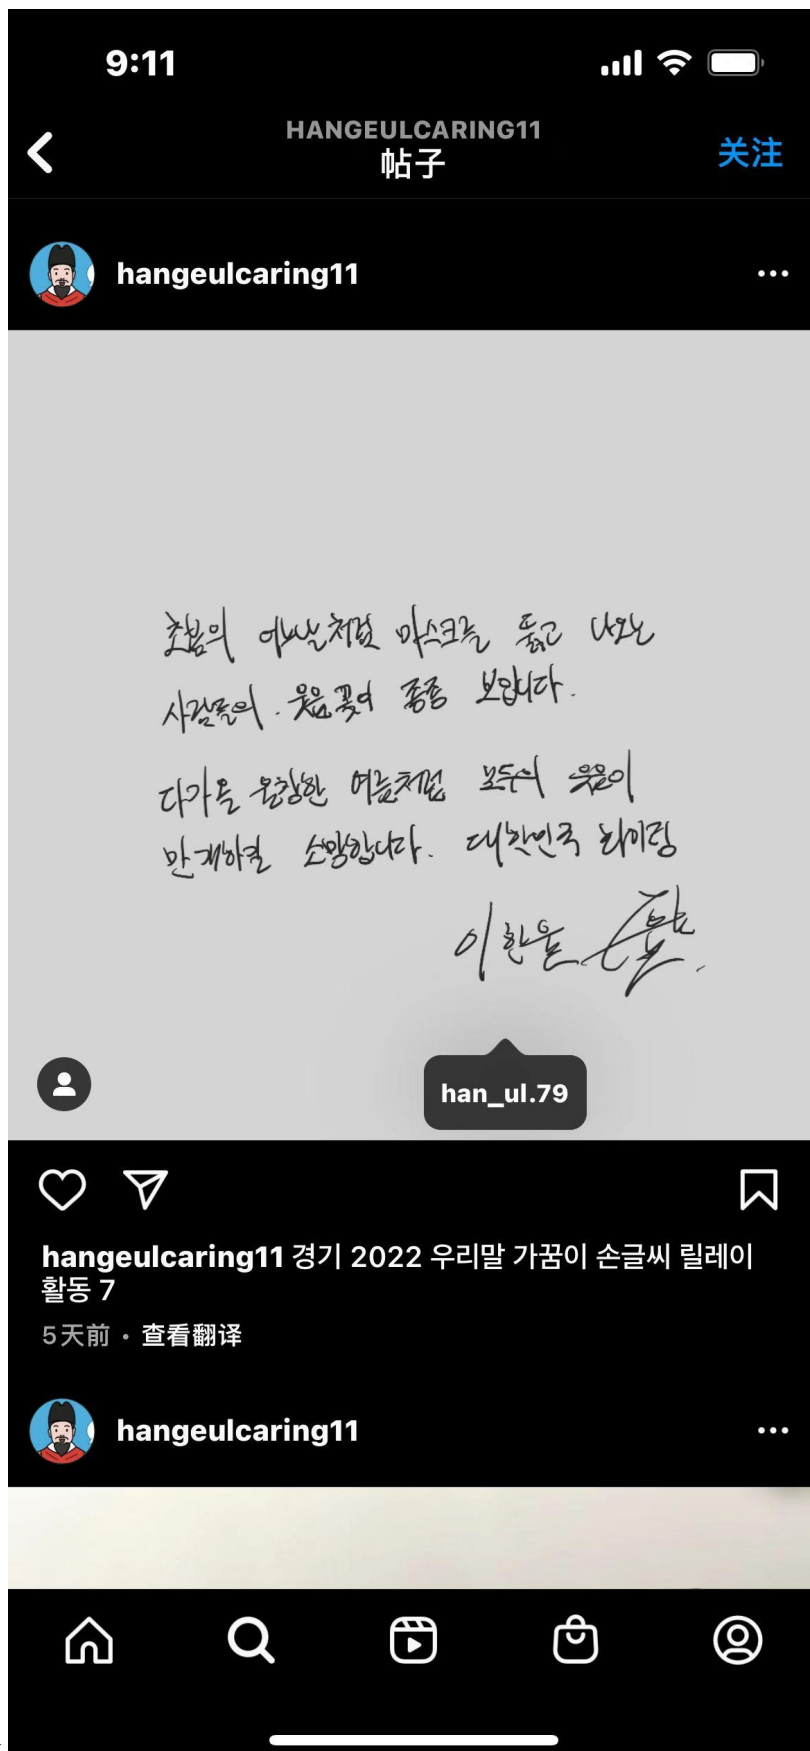 9:11
HANGEULCARING11
帖子
关注
hangeulcaring11
초봄의 어느날처럼 마스크를 뚫고 나오는
사람들의 웃음꽃이 종종 보입니다.
다가올 울창한 여름처럼 모두의 웃음이
만개하길 소망합니다. 대한민국 화이팅
이한울
han_ul.79
hangeulcaring11 경기 2022 우리말 가꿈이 손글씨 릴레이
활동 7
5天前 · 查看翻译
hangeulcaring11